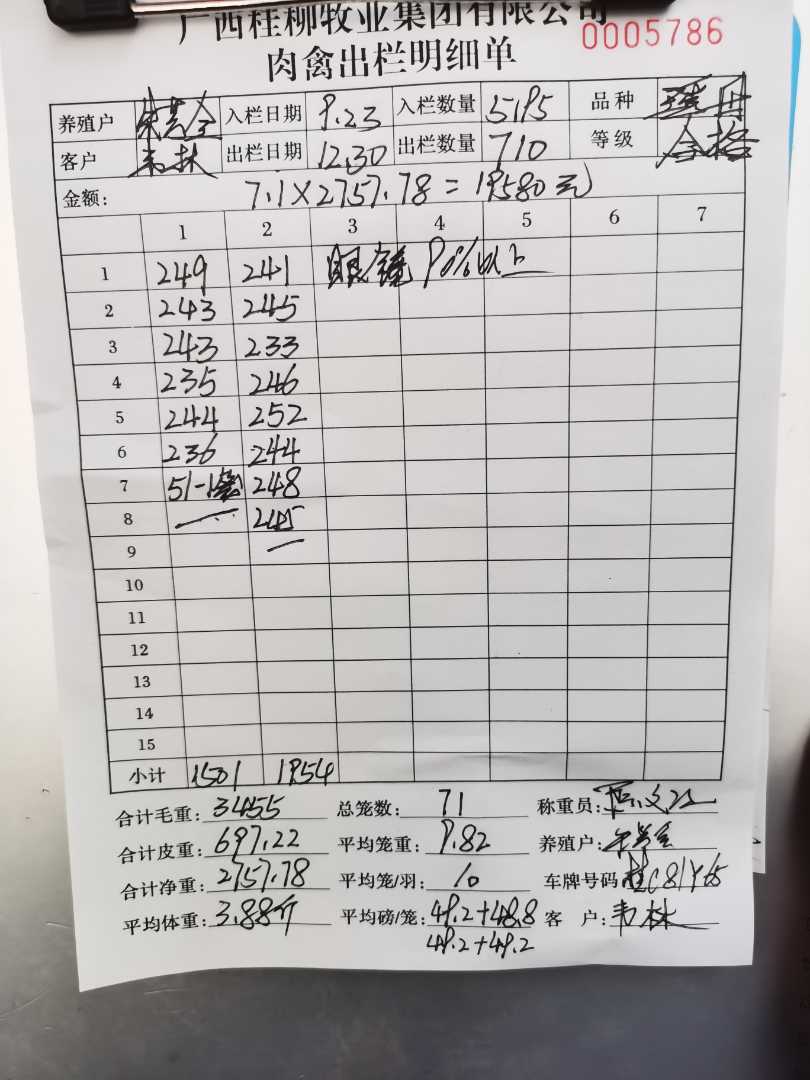 广西桂柳牧业集团有限公司
肉禽出栏明细单 0005786
养殖户 入栏日期 9.23 入栏数量 5195 品种
客户 韦林 出栏日期 12.30 出栏数量 710 等级 合格
金额: 7.1×2757.78=19580元
1 2 3 4 5 6 7
1 249 241 眼镜90%以上
2 243 245
3 243 233
4 235 246
5 244 252
6 236 244
7 51-1笼 248
8 245
9
10
11
12
13
14
15
小计 1501 1954
合计毛重: 3455 总笼数: 71 称重员:
合计皮重: 697.22 平均笼重: 9.82 养殖户:
合计净重: 2757.78 平均笼/羽: 10 车牌号码
平均体重: 3.88斤 平均磅/笼: 49.2+48.8 客 户: 韦林
49.2+49.2